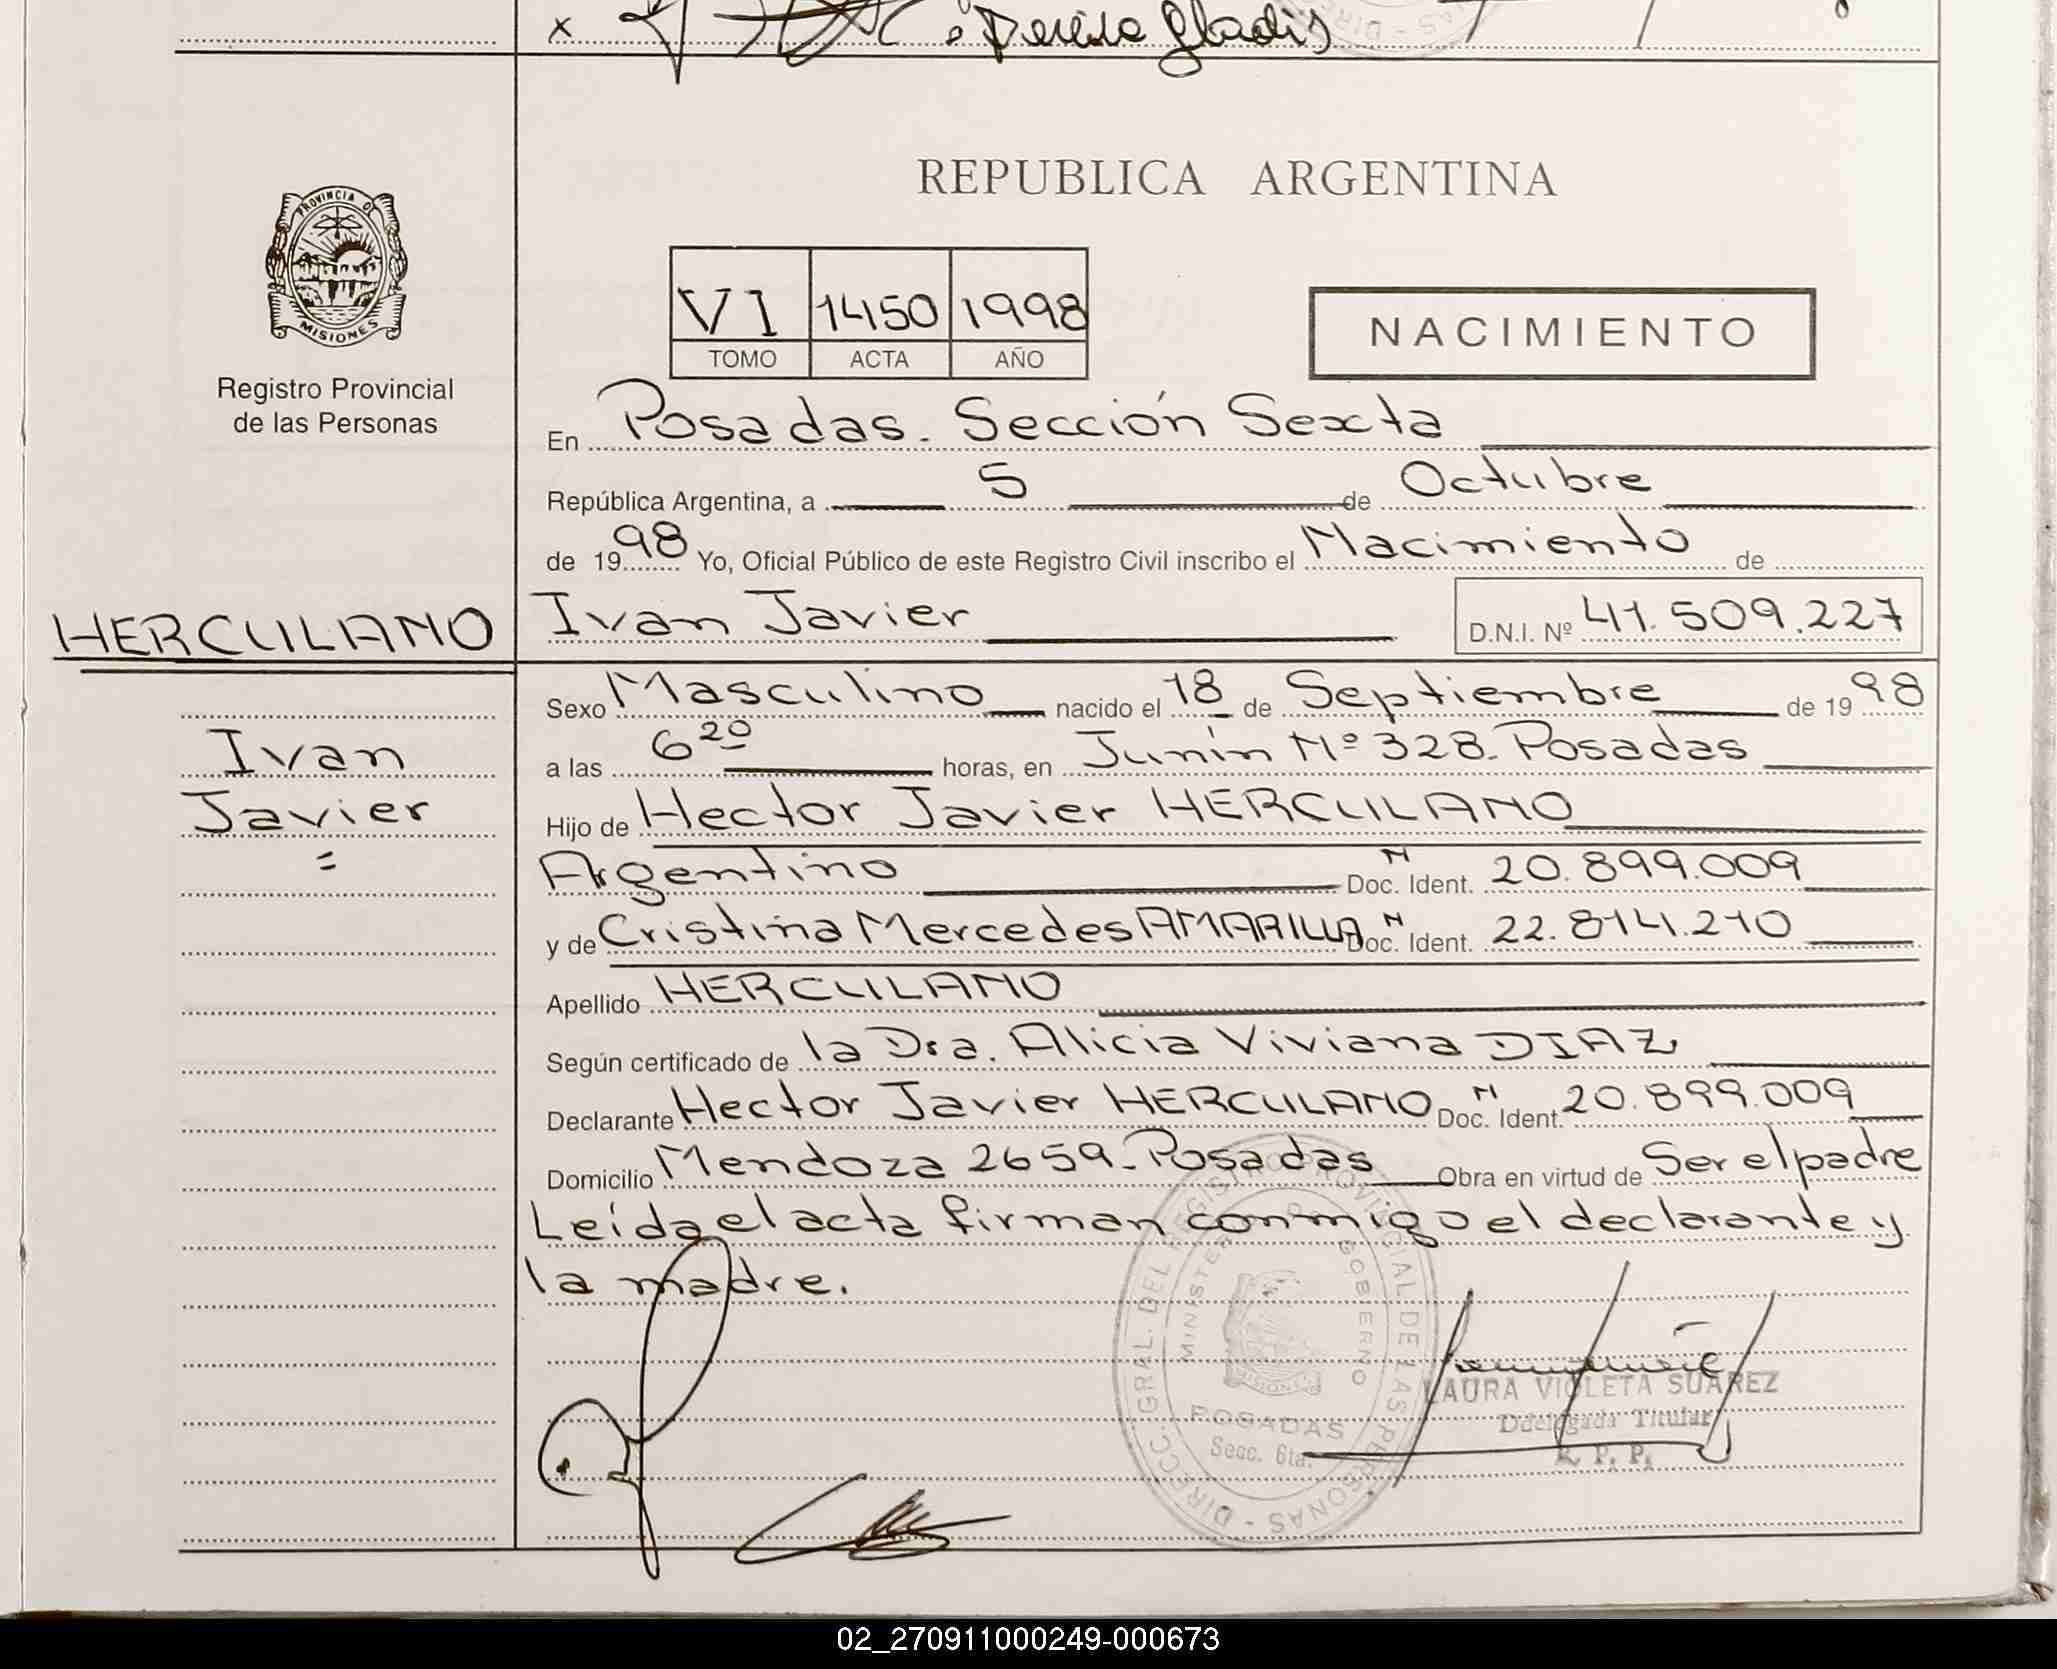 x Pereira Gladis
REPUBLICA ARGENTINA
PROVINCIA DE
MISIONES
Registro Provincial
de las Personas
VI 1450 1998
TOMO ACTA AÑO
NACIMIENTO
En Posadas. Sección Sexta
República Argentina, a 5 de Octubre
de 1998 Yo, Oficial Público de este Registro Civil inscribo el Nacimiento de
HERCULANO Ivan Javier D.N.I. Nº 41.509.227
Sexo Masculino nacido el 18 de Septiembre de 1998
Ivan a las 6 20 horas, en Junín Nº 328. Posadas
Javier Hijo de Hector Javier HERCULANO
= Argentino N Doc. Ident. 20.899.009
y de Cristina Mercedes AMARILLA N Doc. Ident. 22.814.210
Apellido HERCULANO
Según certificado de la Dra. Alicia Viviana DIAZ
Declarante Hector Javier HERCULANO N Doc. Ident. 20.899.009
Domicilio Mendoza 2659. Posadas Obra en virtud de Ser el padre
Leída el acta firman conmigo el declarante y
la madre.
DIRECC. GRAL. DEL REGISTRO PROVINCIAL DE LAS PERSONAS -
MINISTERIO DE GOBIERNO
MISIONES
POSADAS
Secc. 6ta.
LAURA VIOLETA SUAREZ
Ddelegada Titular
R. P. P.
02_270911000249-000673